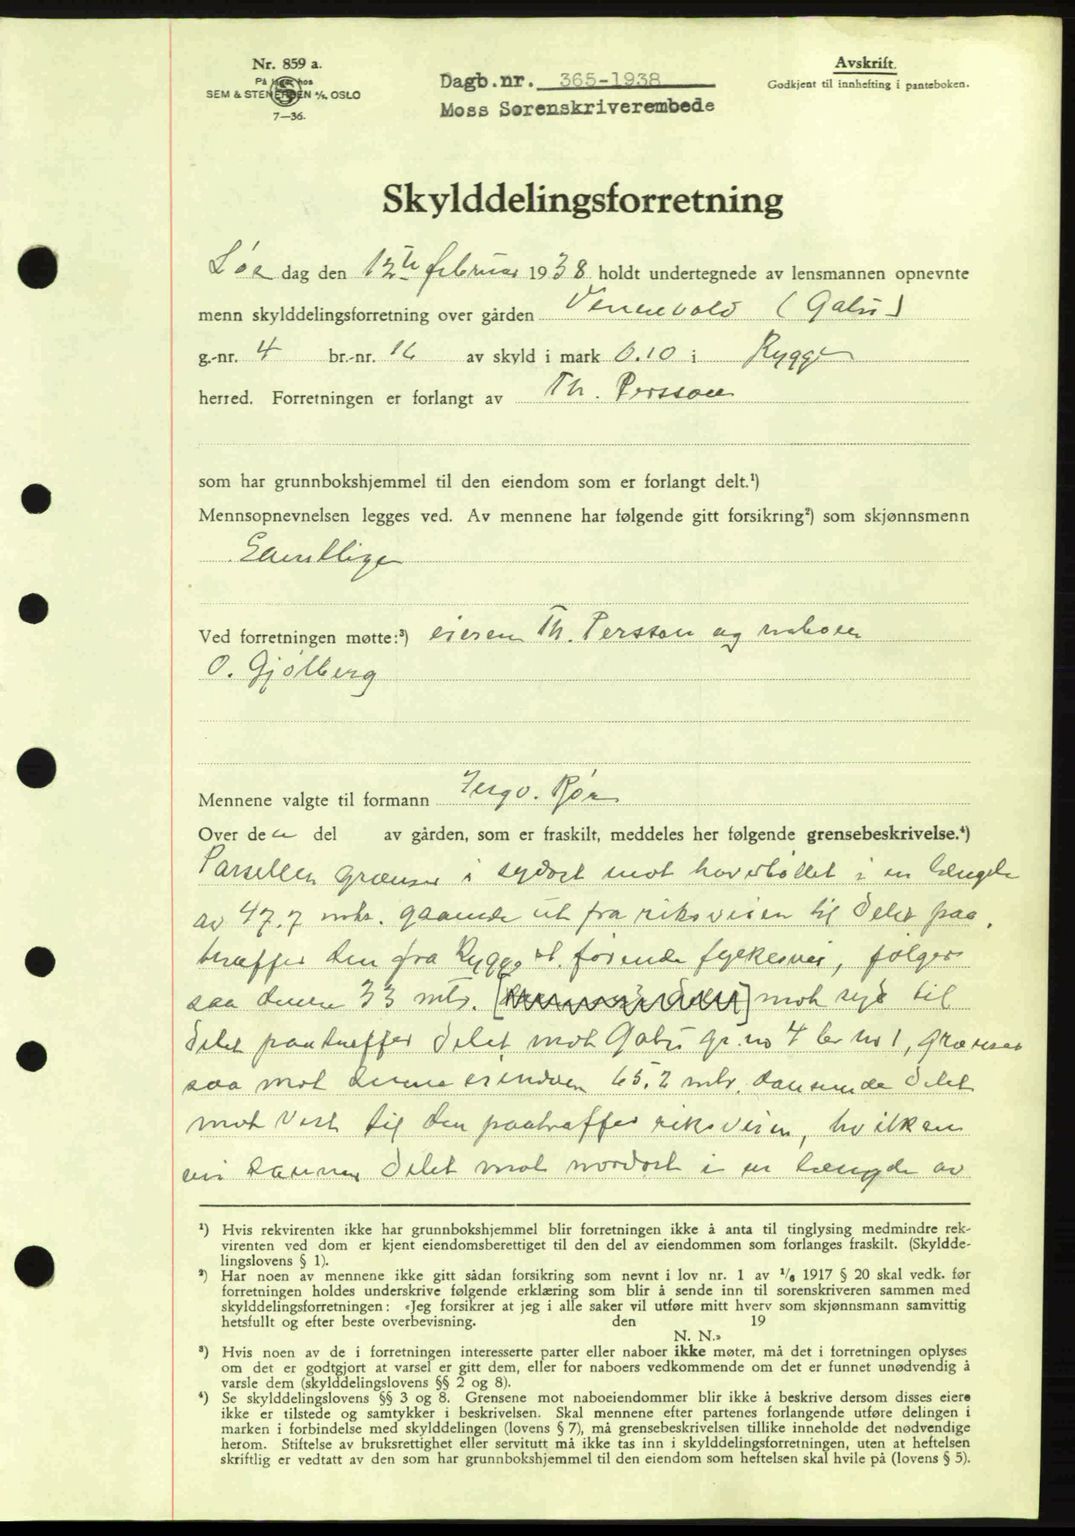 Nr. 859 a.
På lager hos
SEM & STENERSEN A/S. OSLO
7—36.
Dagb.nr. 365-1938
Moss Sorenskriverembede
Avskrift.
Godkjent til innhefting i panteboken.
Skylddelingsforretning
Lør dag den 12te februar 1938 holdt undertegnede av lensmannen opnevnte
menn skylddelingsforretning over gården Vennevold (Galii)
g.-nr. 4 br.-nr. 16 av skyld i mark 0.10 i Rygge
herred. Forretningen er forlangt av Th. Persson
som har grunnbokshjemmel til den eiendom som er forlangt delt.¹)
Mennsopnevnelsen legges ved. Av mennene har følgende gitt forsikring²) som skjønnsmenn
Samtlige
Ved forretningen møtte:³) eieren Th. Persson og naboen
O. Gjølberg
Mennene valgte til formann Ingv. Rør
Over den del av gården, som er fraskilt, meddeles her følgende grensebeskrivelse.⁴)
Parsellen grænser i sydost mot i en længde
av 47.7 mtr. gaaende ut fra riksveien til delet paa
træffer den fra Rygge st. førende fylkesvei, følger
saa denne 33 mtr. mot syd til
delet paatræffer delet mot Galii gr. no 4 br no 1, grænser
saa mot denne eiendom 65.2 mtr. dannende delet
mot vest til den paatræffer riksveien, hvilken
vei danner delet mot nordost i en længde av
¹) Hvis rekvirenten ikke har grunnbokshjemmel blir forretningen ikke å anta til tinglysing medmindre rek-
virenten ved dom er kjent eiendomsberettiget til den del av eiendommen som forlanges fraskilt. (Skyldde-
lingslovens § 1).
²) Har noen av mennene ikke gitt sådan forsikring som nevnt i lov nr. 1 av ¹/₆ 1917 § 20 skal vedk. før
forretningen holdes underskrive følgende erklæring som blir å sende inn til sorenskriveren sammen med
skylddelingsforretningen: «Jeg forsikrer at jeg i alle saker vil utføre mitt hverv som skjønnsmann samvittig
hetsfullt og efter beste overbevisning. den 19
N. N.»
³) Hvis noen av de i forretningen interesserte parter eller naboer ikke møter, må det i forretningen oplyses
om det er godtgjort at varsel er gitt dem, eller for naboers vedkommende om det er funnet unødvendig å
varsle dem (skylddelingslovens §§ 2 og 8).
⁴) Se skylddelingslovens §§ 3 og 8. Grensene mot naboeiendommer blir ikke å beskrive dersom disses eiere
ikke er tilstede og samtykker i beskrivelsen. Skal mennene efter partenes forlangende utføre delingen i
marken i forbindelse med skylddelingen (lovens § 7), må grensebeskrivelsen tillike inneholde det nødvendige
herom. Stiftelse av bruksrettighet eller servitutt må ikke tas inn i skylddelingsforretningen, uten at heftelsen
skriftlig er vedtatt av den som har grunnbokshjemmel til den eiendom som heftelsen skal hvile på (lovens § 5).